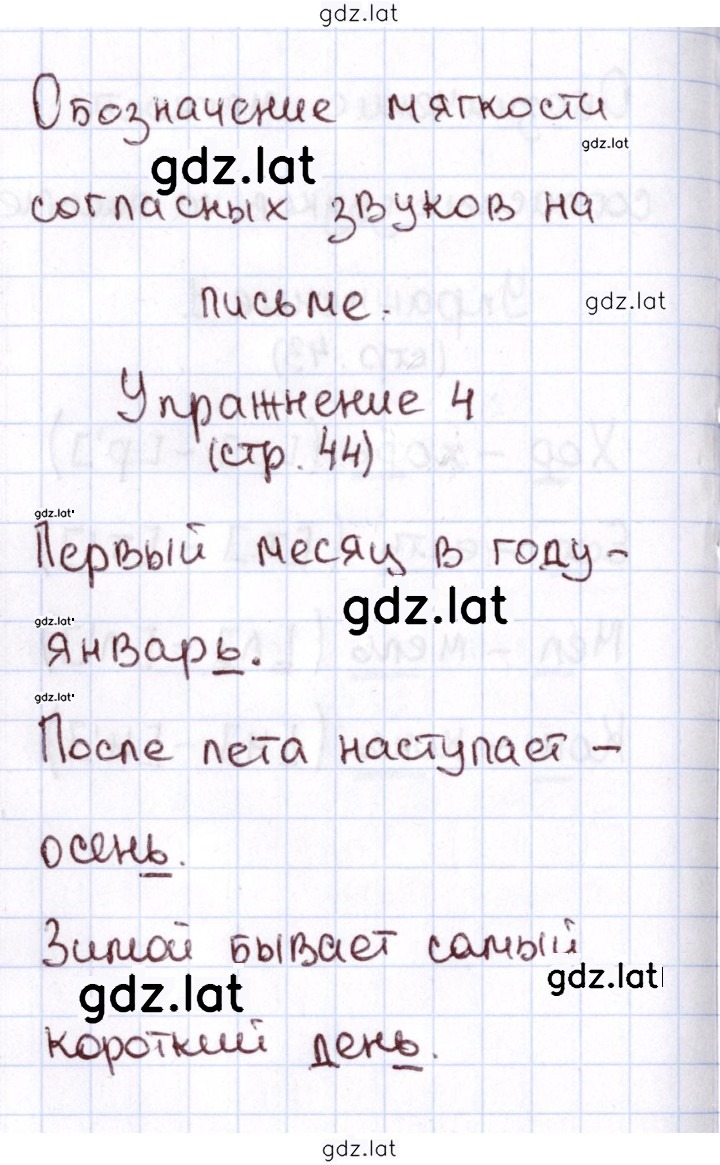 gdz.lat
Обозначение мягкости
gdz.lat
gdz.lat
согласных звуков на
письме.
gdz.lat
Упражнение 4
(стр. 44)
gdz.lat
Первый месяц в году –
gdz.lat
gdz.lat
январь.
gdz.lat
После лета наступает –
осень.
Зимой бывает самый
gdz.lat
gdz.lat
короткий день.
gdz.lat